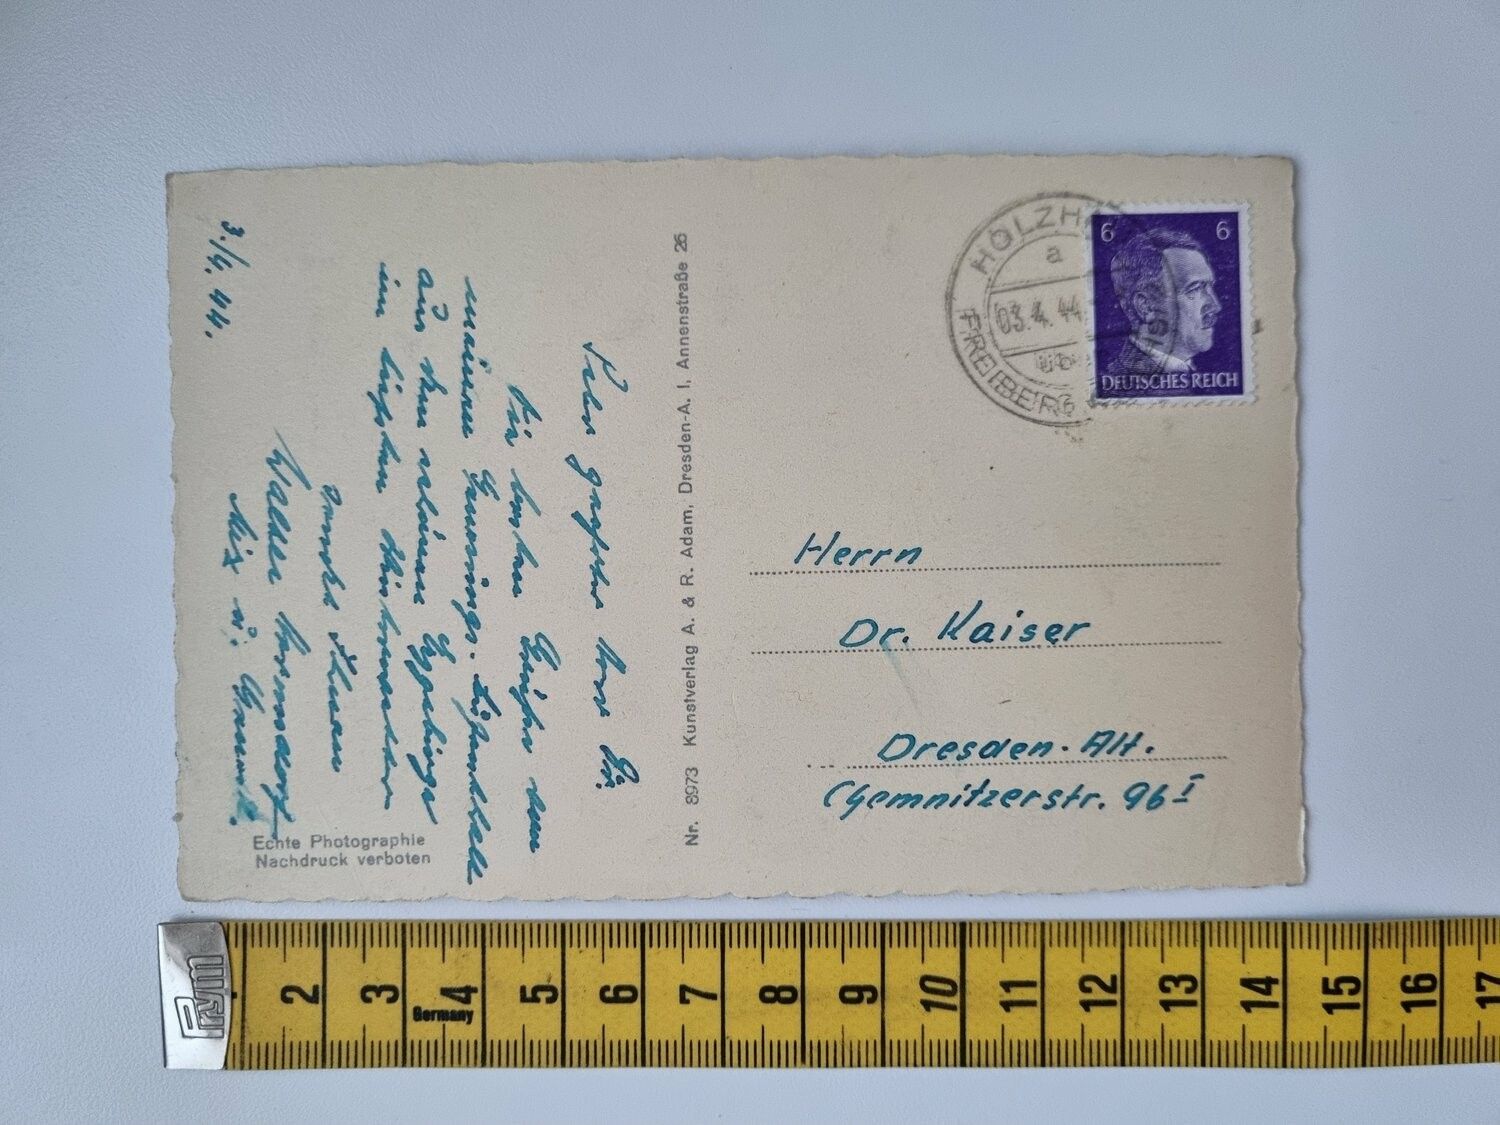 3./4. 44.
Sehr geehrter Herr Dr.
Die besten Grüße von
meiner
aus dem schönen Erzgebirge
im tiefsten
sendet Ihnen
Walter
u.
Echte Photographie
Nachdruck verboten
Nr. 8973 Kunstverlag A. & R. Adam, Dresden-A. I, Annenstraße 26
a
03.4.44
FREIBERG
6 6
DEUTSCHES REICH
Herrn
Dr. Kaiser
Dresden-Alt.
Chemnitzerstr. 96 I
Prym
2 3 4 5 6 7 8 9 10 11 12 13 14 15 16 17
Germany